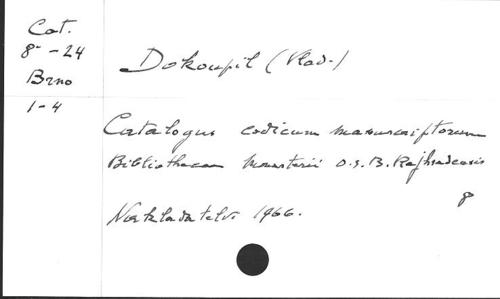 Cat.
8° - 24
Brno
1-4
Dokoupil (Vlad.)
Catalogus codicum manuscriptorum
Bibliothecae Monasterii O.S.B. Rajhradensis
8
Nakladatelstv. 1966.